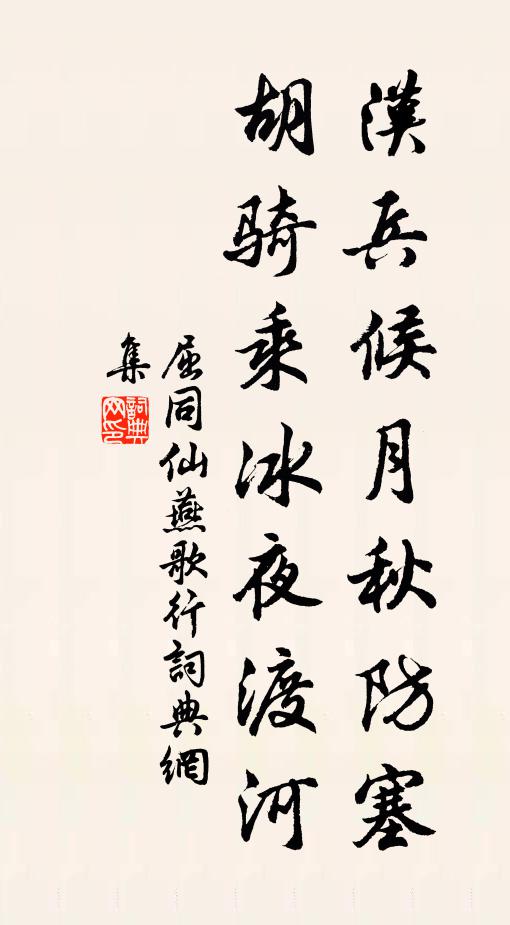 漢兵候月秋防塞
胡骑乘冰夜渡河
屈同仙燕歌行詞典網
集
詞典
网印